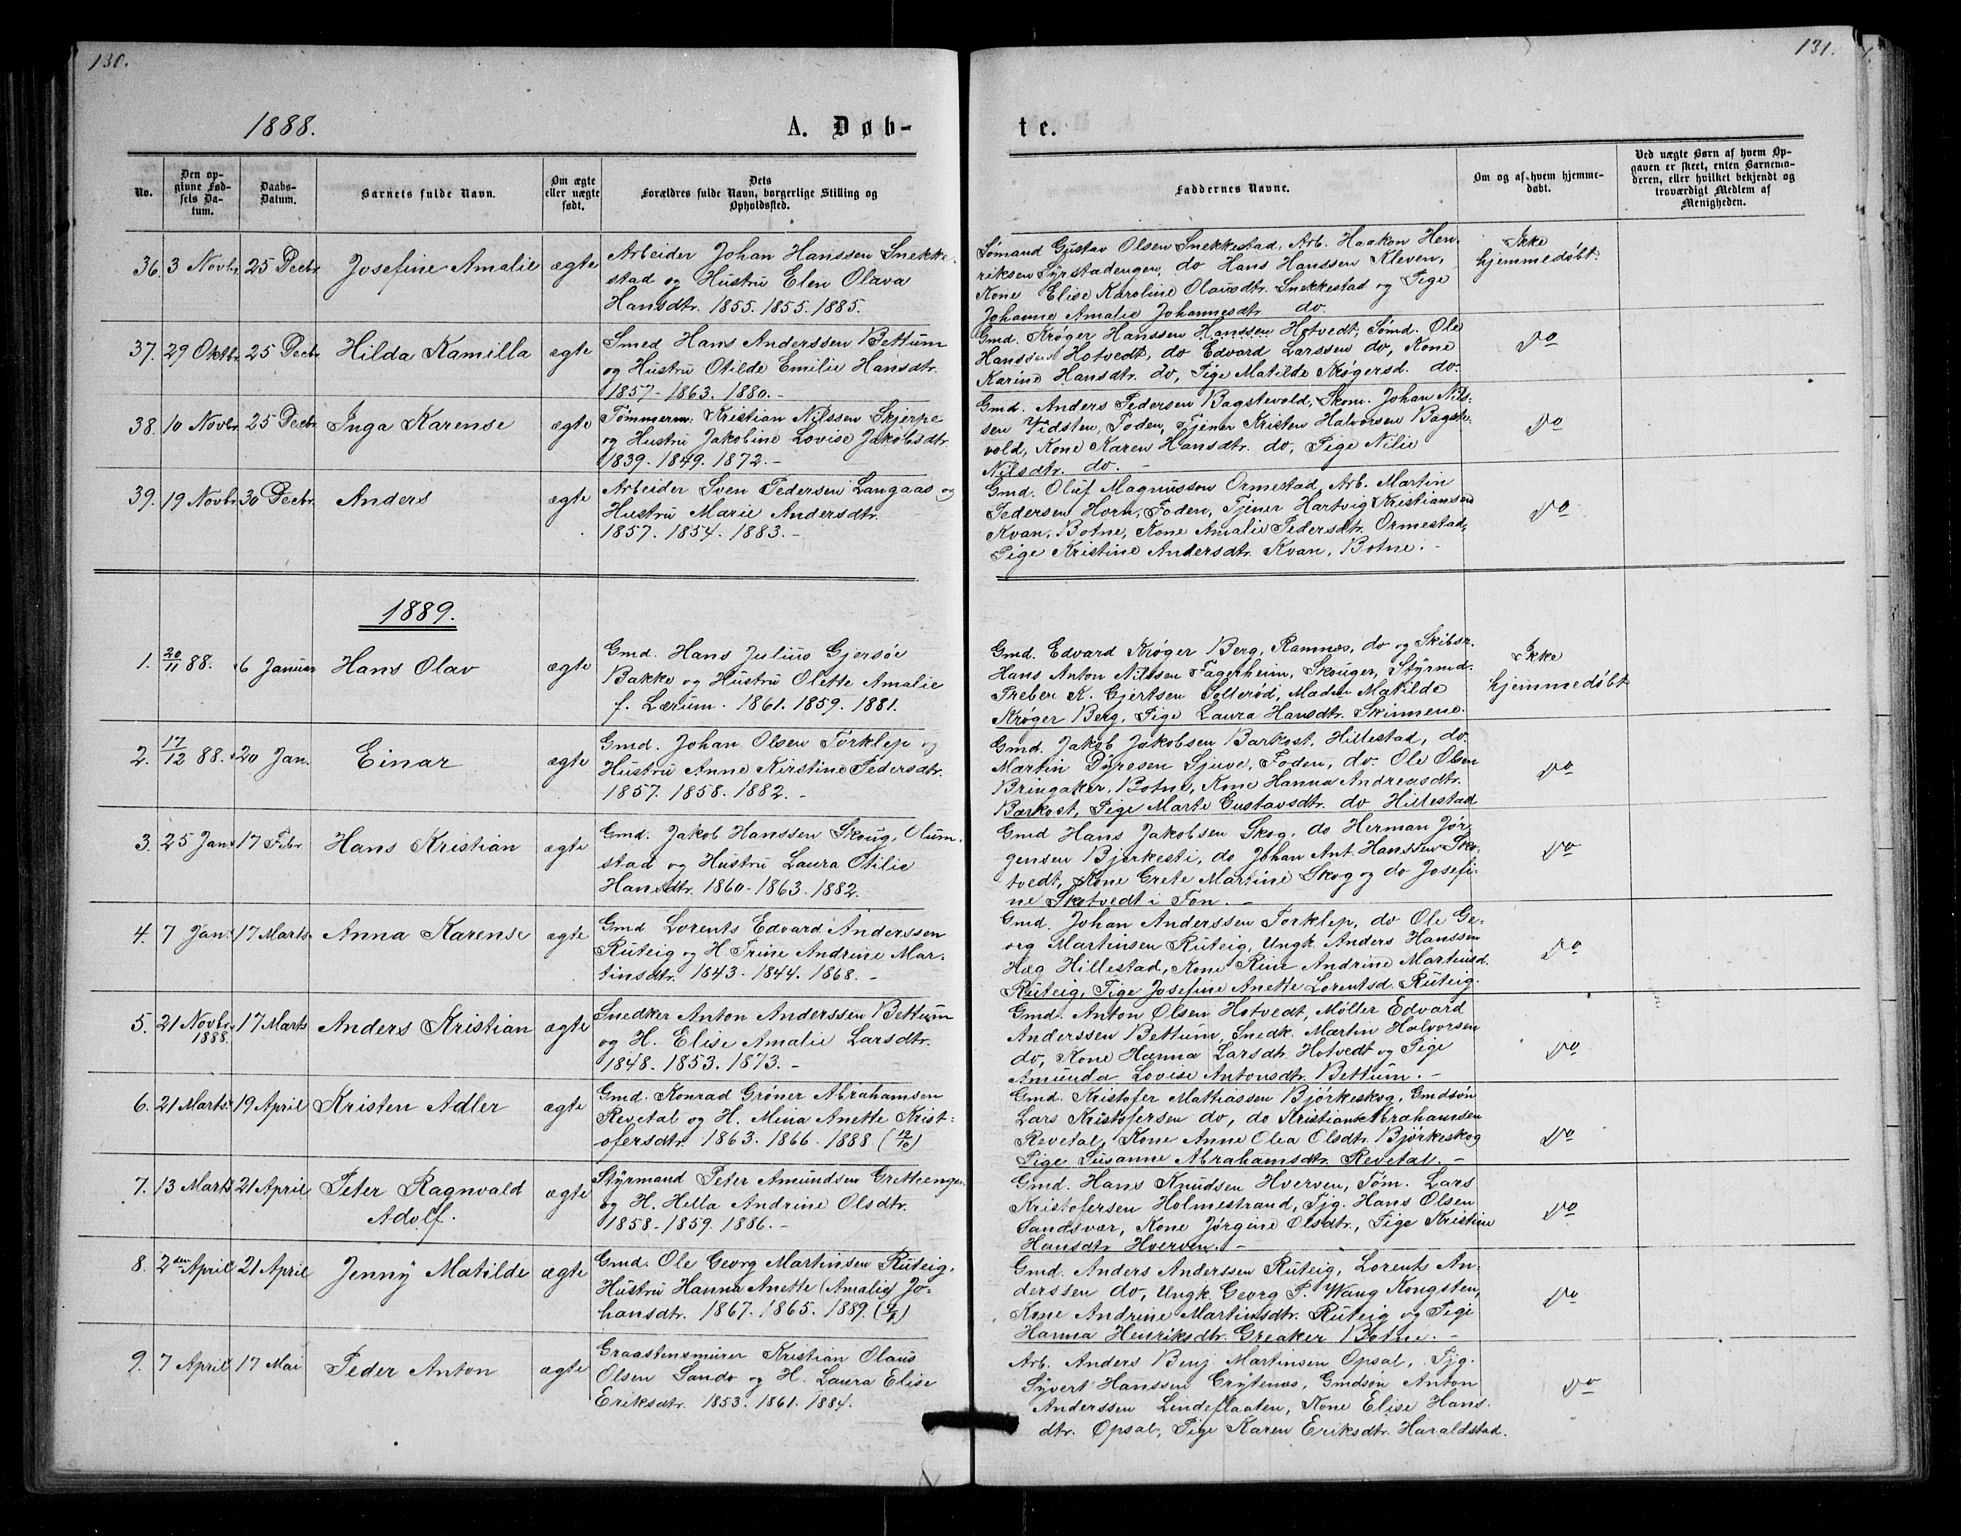 130.
1888.
A. Døb-
No.
Den op-
givne Fød-
sels Da-
tum.
Daabs-
Datum.
Barnets fulde Navn.
Om ægte
eller uægte
født.
Dets
Forældres fulde Navn, borgerlige Stilling og
Opholdssted.
36. 3 Novbr. 25 Decbr. Josefine Amalie ægte
Arbeider Johan Hanssen Snekke-
stad og Hustru Elen Olava
Hansdtr. 1855. 1855. 1885.
37. 29 Oktbr. 25 Decbr. Hilda Kamilla ægte
Smed Hans Anderssen Bettum
og Hustru Otilde Emilie Hansdtr.
1857 - 1863. 1880. -
38. 10 Novbr. 25 Decbr. Inga Karense ægte
Tømmerm. Kristian Nilssen Skjerpe
og Hustru Jakobine Lovise Jakobsdtr.
1839. 1849. 1872. -
39. 19 Novbr. 30 Decbr. Anders ægte
Arbeider Sven Pedersen Langaas og
Hustru Marie Andersdtr.
1857. 1854. 1883. -
1889.
1. 20/11 88. 6 Januar Hans Olav ægte
Gmd. Hans Julius Gjersøe
Bakke og Hustru Olette Amalie
f. Lærum. 1861. 1859. 1881.
2. 17/12 88. 20 Jan. Einar ægte
Gmd. Johan Olsen Torklep og
Hustru Anne Kirstine Pedersdtr.
1857. 1858. 1882. -
3. 25 Jan. 17 Febr. Hans Kristian ægte
Gmd. Jakob Hanssen Skoug, Olum-
stad og Hustru Laura Otilie
Hansdtr. 1860 - 1863. 1882.
4. 7 Jan. 17 Marts Anna Karense ægte
Gmd Lorents Edvard Anderssen
Ruteig og H. Trine Andrine Mar-
tinsdtr. 1843. 1844. 1868. -
5. 21 Novbr. 1888. 17 Marts Anders Kristian ægte
Snedker Anton Anderssen Bettum
og H. Elise Amalie Larsdtr.
1848. 1853. 1873. -
6. 21 Marts 19 April Kristen Adler ægte
Gmd. Konrad Grøner Abrahamsen
Revetal og H. Mina Anette Krist-
ofersdtr. 1863. 1866. 1888 (12/10)
7. 13 Marts 21 April Peter Ragnvald
Adolf. ægte
Styrmand Peter Amundsen Gretteengen
og H. Hella Andrine Olsdtr.
1858 - 1859. 1886. -
8. 2den April 21 April Jenny Matilde ægte
Gmd. Ole Georg Martinsen Ruteig,
Hustru Hanna Anette (Amalie) Jo-
hansdtr. 1867. 1865. 1889.
9. 7 April 17 Mai Peder Anton ægte
Graastensmurer Kristian Olaus
Olsen Sando og H. Laura Elise
Eriksdtr. 1853. 1861. 1884.
131.
te.
Faddernes Navne.
Om og af hvem hjemme-
døbt.
Ved uægte Børn af hvem Op-
gaven er skeet, enten Barnemo-
deren, eller hvilket bekjendt og
troværdigt Medlem af
Menigheden.
Sømand Gustav Olsen Snekkestad, Arb. Haakon Hen-
riksen Syrstadengen, do Hans Hanssen Kleven,
Kone Elise Karoline Olausdtr. Snekkestad og Pige
Johanne Amalie Johannesdtr do.
Ikke
hjemmedøbt.
Gmd. Krøger Hanssen Hanssen Hotvedt, Sømd. Ole
Hanssen Hotvedt, do Edvard Larssen do, Kone
Karine Hansdtr. do, Pige Matilde Krøgersd. do.
do
Gmd. Anders Pedersen Bagstevold, Skom. Johan Nils-
sen Vidsten, Foden, Tjener Kristen Halvorsen Bagste-
vold, Kone Karen Hansdtr. do, Pige Nilie
Nilsdtr. do. -
do
Gmd. Oluf Magnusson Ormestad, Arb. Martin
Pedersen Horn, Foden, Tjener Hartvig Kristiansen
Kvan, Botne, Kone Amalie Pedersdtr. Ormestad,
Pige Kristine Andersdtr. Kvan, Botne. -
do
Gmd. Edvard Krøger Berg, Ramnæs, do og Skibsr.
Hans Anton Nilssen Fagerheim, Skouger, Styrmd.
Preben K. Gjertsen Solerød, Madm Matilde
Krøger Berg, Pige Laura Hansdtr. Skinmene.
Ikke
hjemmedøbt
Gmd. Jakob Jakobsen Barkost, Hillestad, do.
Martin Dyresen Sjuve, Foden, do. Ole Olsen
Bringaker, Botne, Kone Hanna Andreasdtr.
Barkost, Pige Marte Gustavsdtr. do Hillestad
do
Gmd Hans Jakobsen Skog, do Herman Jør-
gensen Bjerkesti, do Johan Ant. Hanssen Sko-
tvedt, Kone Grete Martine Skog og do Josefi-
ne Skotvedt i Fon. -
do
Gmd. Johan Anderssen Torklep, do Ole Ge-
org Martinsen Ruteig, Ungk. Anders Hanssen
Hæg Hillestad, Kone Andrine Martinsd.
Ruteig, Pige Josefine Anette Lorentsd. Ruteig.
do
Gmd. Anton Olsen Hotvedt, Møller Edvard
Anderssen Bettum, Snedk. Martin Halvorsen
do, Kone Hanna Larsdtr. Hotvedt og Pige
Amunda Lovise Antonsdtr. Bettum. -
do
Gmd. Kristofer Mathiassen Bjørkeskog, Gmdsøn
Lars Kristofersen do, do Kristian Abrahamsen
Revetal, Kone Anne Olea Olsdtr. Bjørkeskog
Pige Susanne Abrahamsdtr. Revetal. -
do
Gmd. Hans Knudsen Hverven, Tøm. Lars
Kristofersen Holmestrand, Tjg. Hans Olsen
Sandsvær, Kone Jørgine Olsdtr., Pige Kristine
Hansdtr Hverven. -
do
Gmd. Anders Anderssen Ruteig, Lorents An-
derssen do, Ungk. Georg P. Wang Kongsten,
Kone Andrine Martinsdtr. Ruteig og Pige
Hanna Henriksdtr. Greaker Botne. -
do
Arb. Anders Benj Martinsen Opsal, Tjg.
Syvert Hanssen Grytenæs, Gmdsøn Anton
Anderssen Lindeflaaten, Kone Elise Hans-
dtr. Opsal, Pige Karen Eriksdtr. Haraldstad.
do